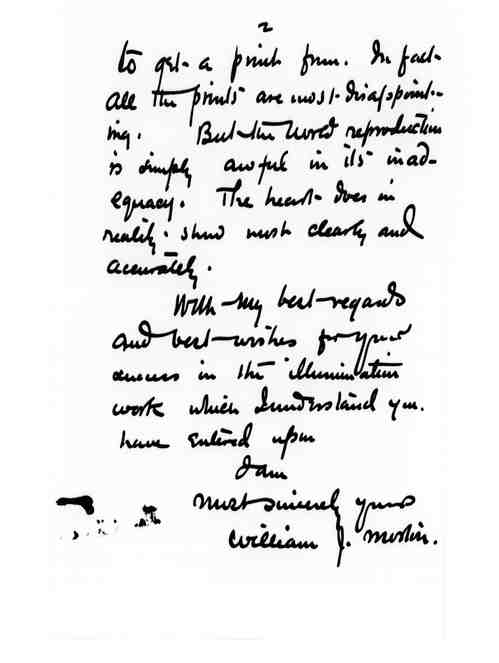 2
to get a print from. In fact
all the prints are most disappoint-
ing. But the World reproduction
is simply awful in its inad-
equacy. The heart does in
reality show most clearly and
accurately.
With my best regards
and best wishes for your
success in the illumination
work which I understand you
have entered upon
I am
Most sincerely yours
William J. Morton.